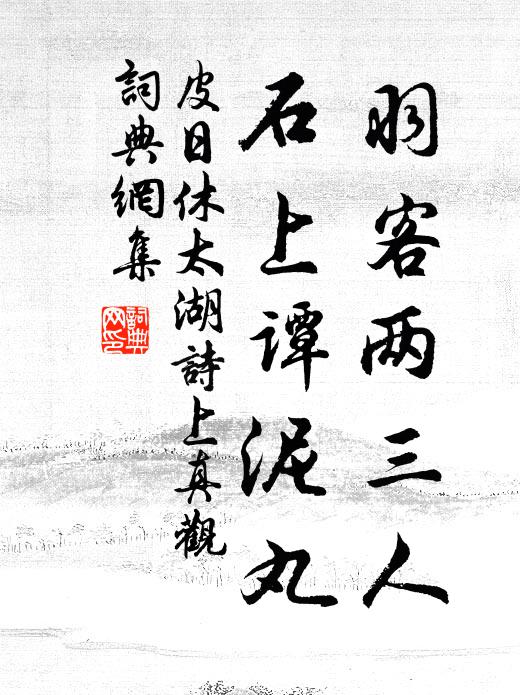 羽客两三人
石上譚泥丸
皮日休太湖詩上真觀
詞典網集
詞典網印